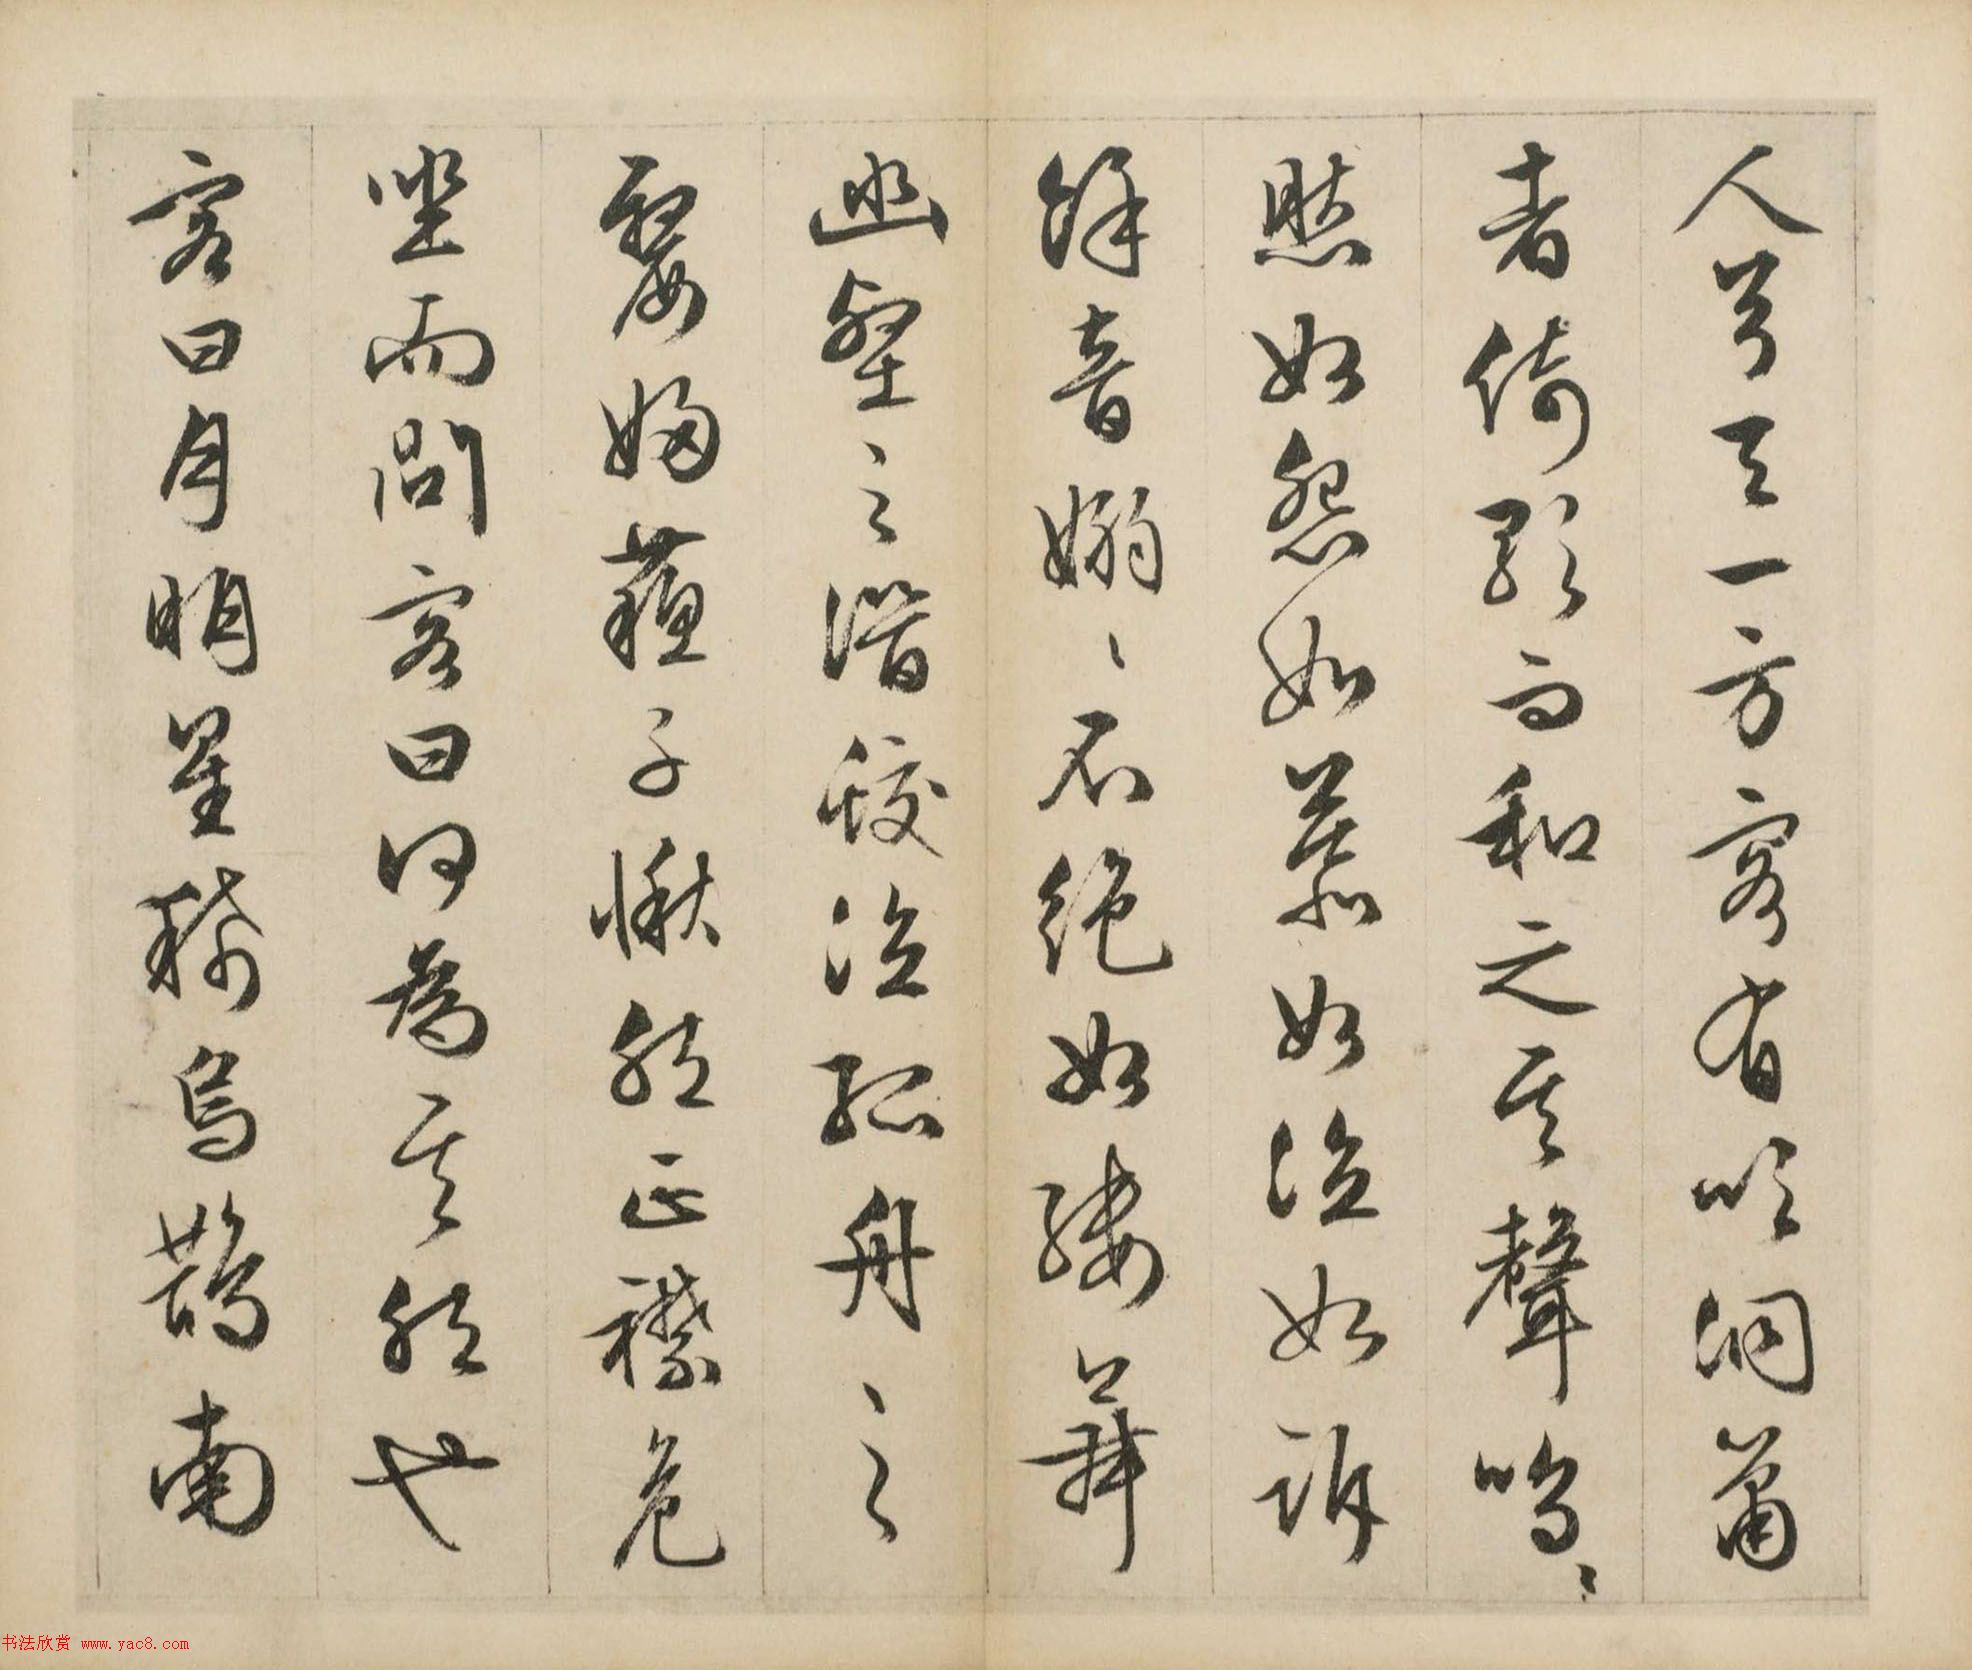 人兮天一方客有吹洞簫
者倚歌而和之其聲嗚〻
然如怨如慕如泣如訴
餘音嫋〻不絕如縷舞
幽壑之潛蛟泣孤舟之
嫠婦蘇子愀然正襟危
坐而問客曰何為其然也
客曰月明星稀烏鵲南
书法欣赏 www.yac8.com